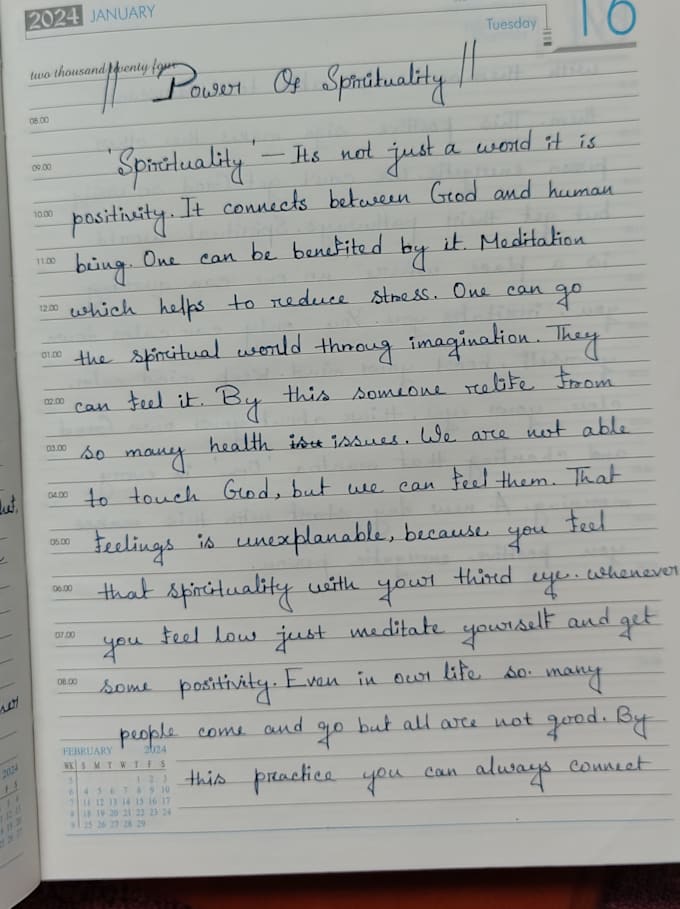 2024 JANUARY
Tuesday 16
two thousand twenty four
|| Power Of Spirituality ||
08.00
09.00 'Spirituality' – Its not just a word it is
10.00 positivity. It connects between God and human
11.00 being. One can be benefited by it. Meditation
12.00 which helps to reduce stress. One can go
01.00 the spiritual world throug imagination. They
02.00 can feel it. By this someone relife from
03.00 so many health issues. We are not able
04.00 to touch God, but we can feel them. That
05.00 feelings is unexplanable, because you feel
06.00 that spirituality with your third eye. whenever
07.00 you feel low just meditate yourself and get
08.00 some positivity. Even in our life so. many
people come and go but all are not good. By
this practice you can always connect
FEBRUARY 2024
WK S M T W T F S
5 1 2 3
6 4 5 6 7 8 9 10
7 11 12 13 14 15 16 17
8 18 19 20 21 22 23 24
9 25 26 27 28 29